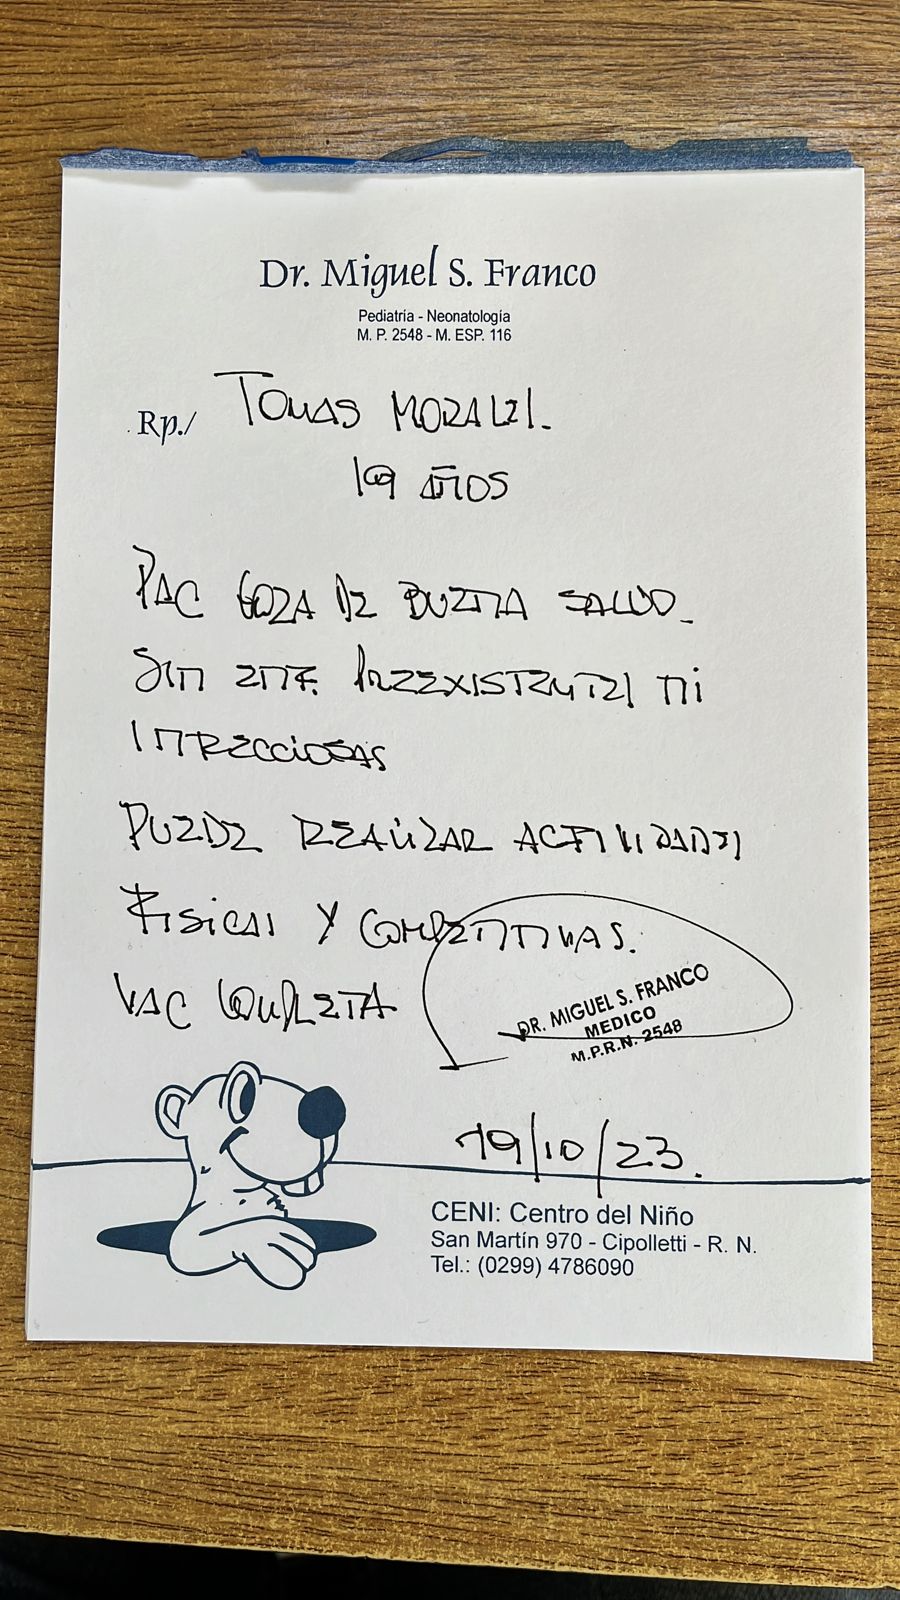 Dr. Miguel S. Franco
Pediatría - Neonatología
M. P. 2548 - M. ESP. 116
Rp./ TOMAS MORALES.
19 AÑOS
PAC GOZA DE BUENA SALUD.
SIN ENF. PREEXISTENTES NI
INFECCIOSAS
PUEDE REALIZAR ACTIVIDADES
FISICAS Y COMPETITIVAS.
VAC COMPLETA
DR. MIGUEL S. FRANCO
MEDICO
M.P.R.N. 2548
19/10/23.
CENI: Centro del Niño
San Martín 970 - Cipolletti - R. N.
Tel.: (0299) 4786090